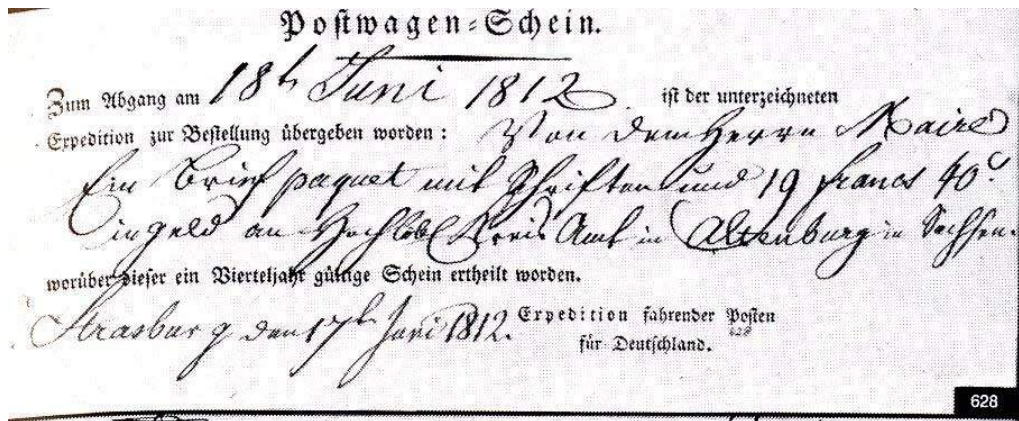 Postwagen-Schein.
Zum Abgang am 18t Juni 1812 ist der unterzeichneten
Expedition zur Bestellung übergeben worden: Von dem Herrn Maire
Ein Brief paquet mit Schriften und 19 francs 40 c
in geld an Hochlobl. Kreis Amt in Altenburg in Sachsen.
worüber dieser ein Vierteljahr gültige Schein ertheilt worden.
Strasburg den 17t Juni 1812. Expedition fahrender Posten
für Deutschland.
628
628